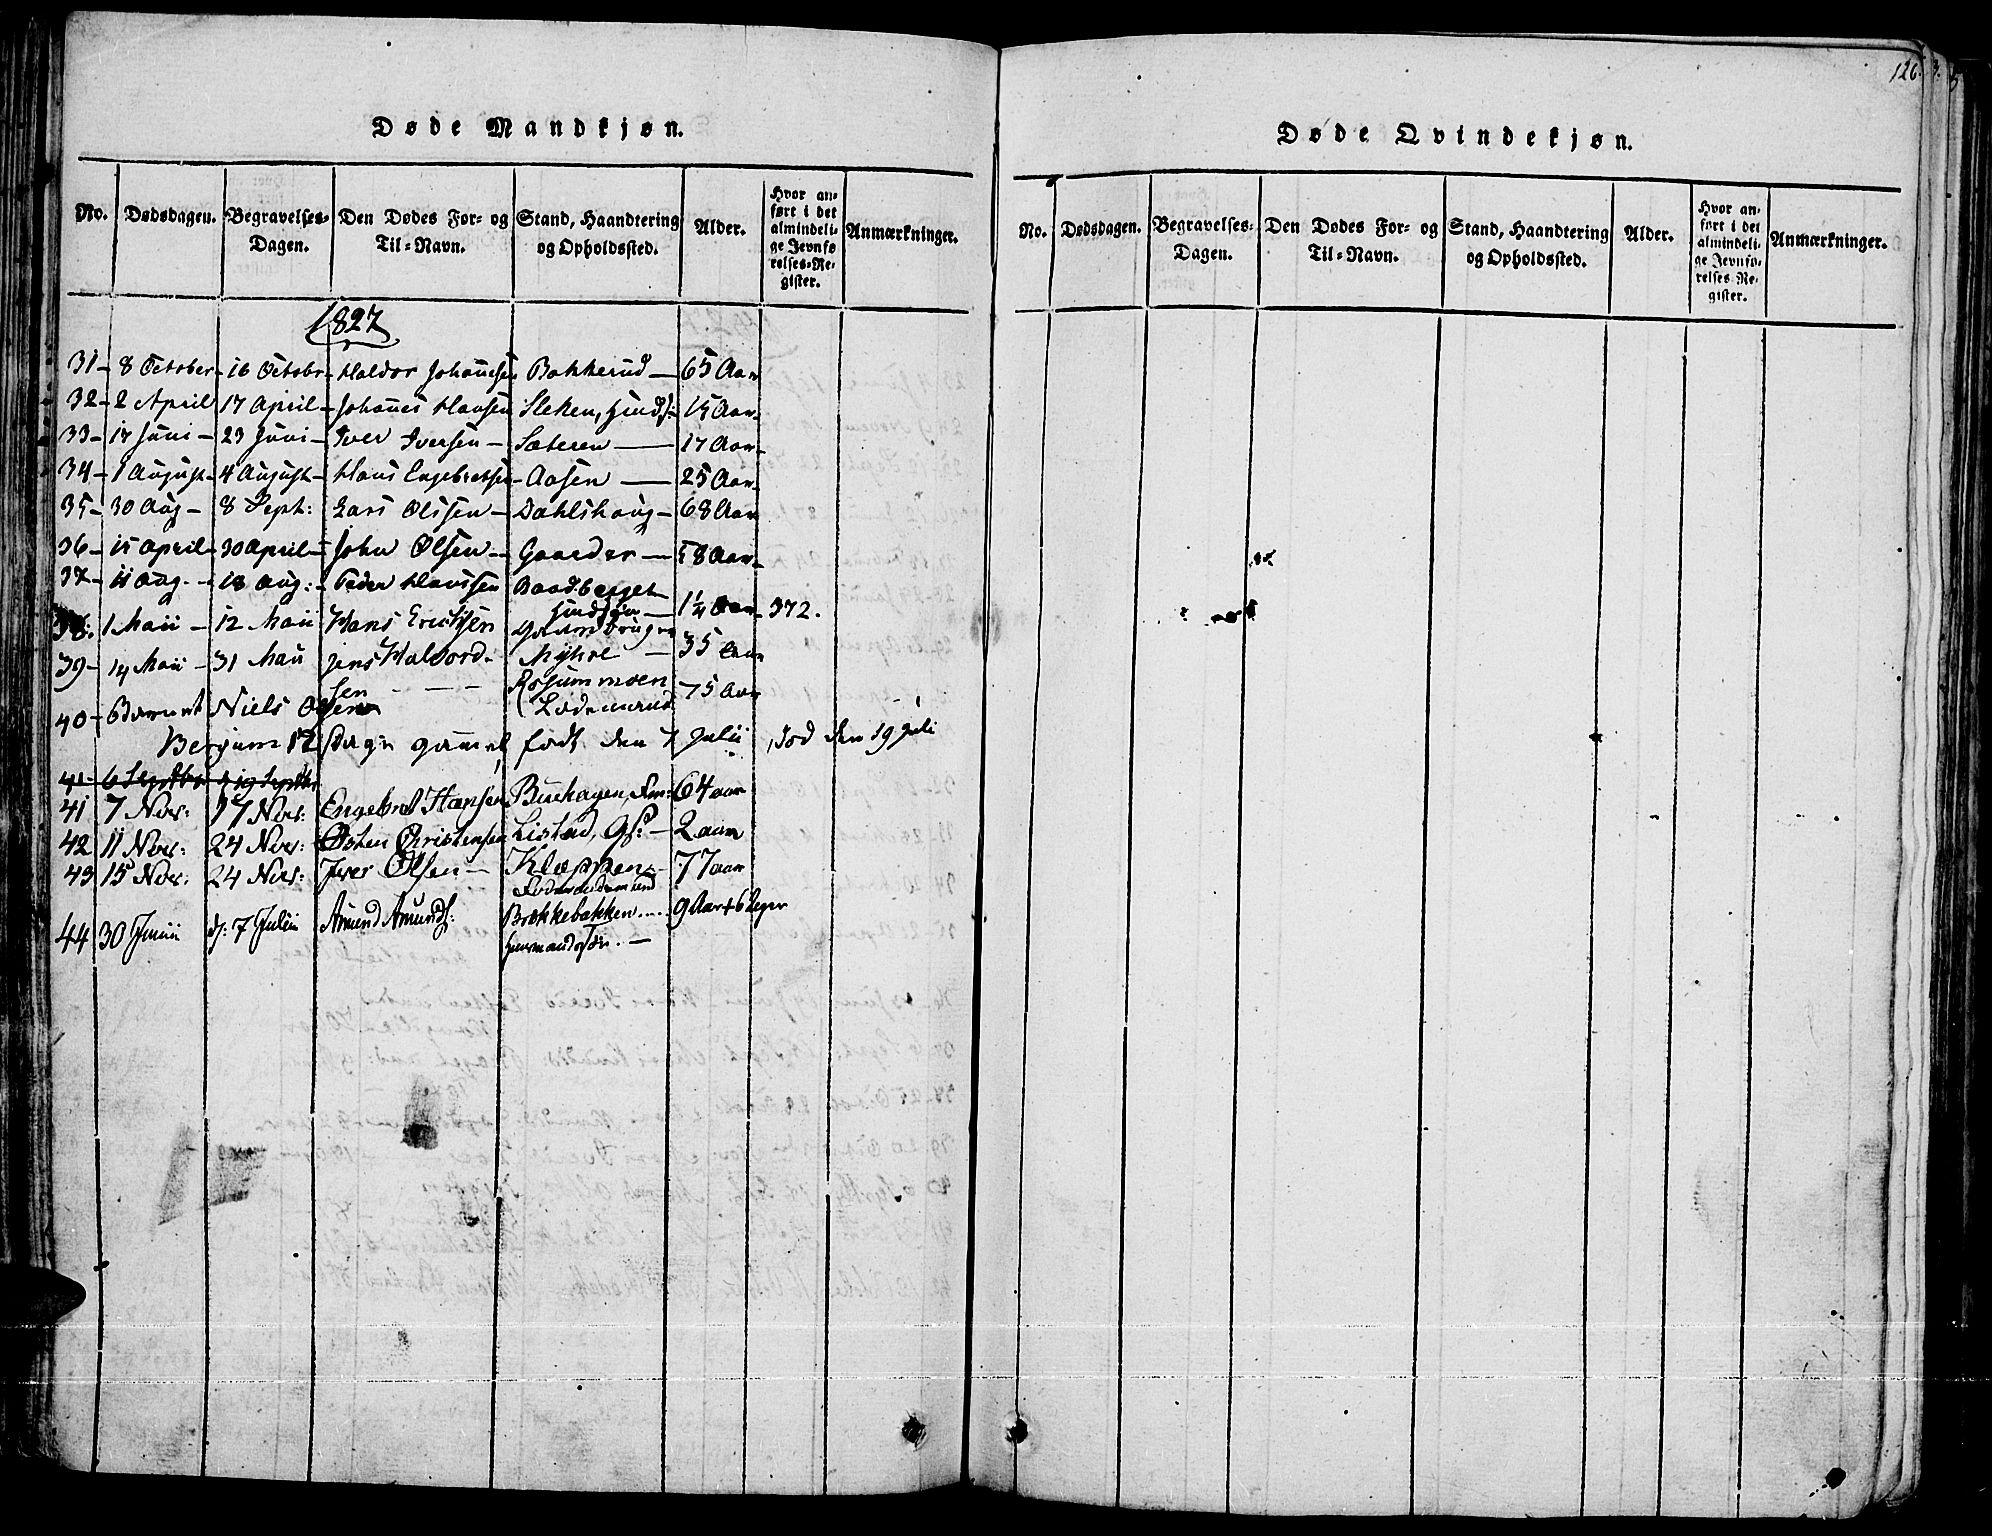 Døde Mandkjøn.
No. Dødsdagen. Begravelses-Dagen. Den Dødes For- og Til-Navn. Stand, Haandtering og Opholdssted. Alder. Hvor anført i det almindelige Jevnførelses-Register. Anmærkninger.
1827
31 - 8 October - 16 Octobr - Haldor Johannesen Bakkerud - 65 Aar
32 - 2 April 17 April - Johannes Hansen Sleken, - 15 Aar
33 - 17 Juni - 23 Juni - Iver Iversen - Sæteren - 17 Aar
34 - 1 August - 4 August - Hans Engebretsen - Aasen - 25 Aar
35 - 30 Aug - 8 Sept: Lars Olssen - Dahlshaug - 68 Aar
36 - 15 April - 30 April - John Olsen - Gaarder - 58 Aar
37 - 11 Aug. - 18 Aug: - Peder Hanssen Baadberget
38. 1 Maii - 12 Maii Hans Erichsen - 1 1/4 Aar - 372.
Gaardbruger
39 - 14 Maii - 31 Maii Jens Halvord- Myhre - 35 Aar
sen - - - Rosjummoen 75 Aar
40 - Barnet Niels Olsen
Bergum 12 Dage gammel, født den 7 Julii, død den 19 Juli
41 - 6 Septbr - 19 Septbr
41 7 Nov: 17 Nov: Engebret Hansen Buehagen, 64 aar
42 11 Nov: 24 Nov: Østen Christensen Listad, Gs: - 2 aar
43 15 Nov. 24 Nov: Iver Olsen - Kloppen - 77 aar
44 30 Junii d: 7 Julii Amund Amunds: Brekkebakken .... 9 Aar + 6 Uger
Huusmandssøn. -
126.
Døde Qvindekjøn.
No. Dødsdagen. Begravelses-Dagen. Den Dødes For- og Til-Navn. Stand, Haandtering og Opholdssted. Alder. Hvor anført i det almindelige Jevnførelses-Register. Anmærkninger.